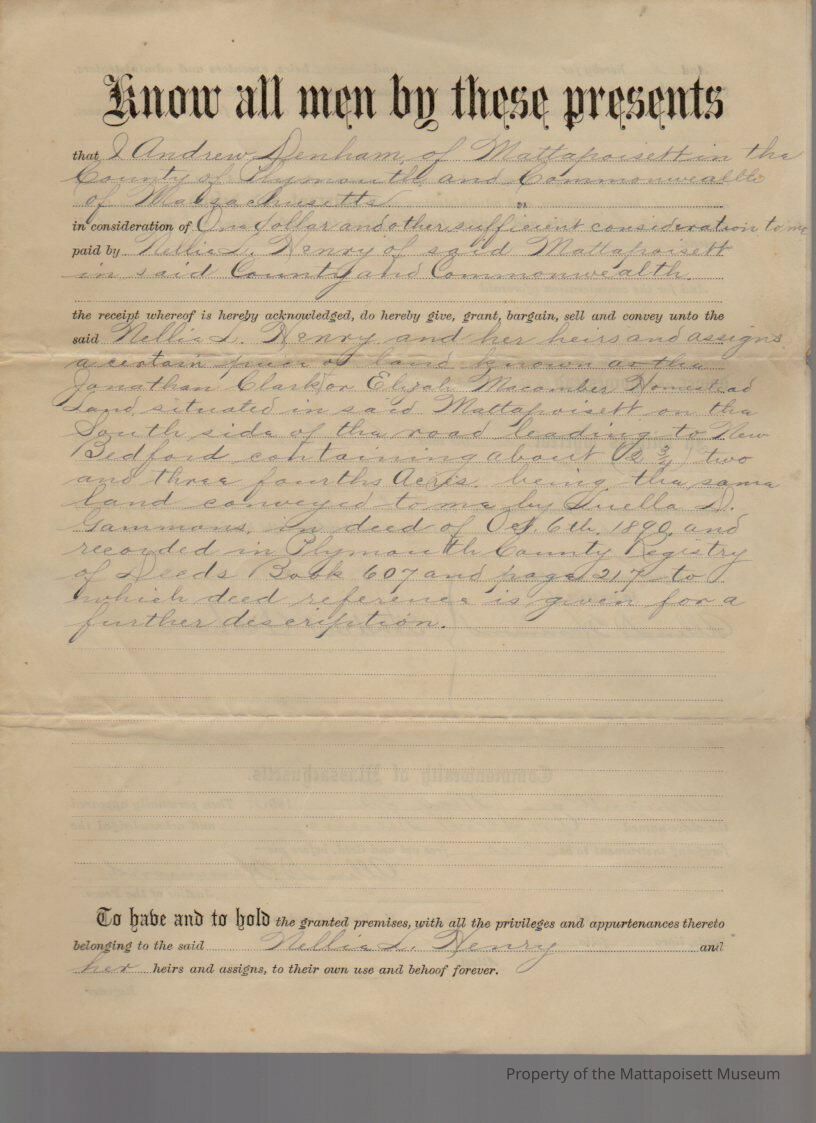 Know all men by these presents
that I Andrew Denham, of Mattapoisett in the
County of Plymouth and Commonwealth
of Massachusetts
in consideration of One dollar and other sufficient consideration to me
paid by Nellie L. Henry of said Mattapoisett
in said County and Commonwealth.
the receipt whereof is hereby acknowledged, do hereby give, grant, bargain, sell and convey unto the
said Nellie L. Henry and her heirs and assigns
a certain piece of land known as the
Jonathan Clark or Elijah Macomber Homestead
Land situated in said Mattapoisett on the
South side of the road leading to New
Bedford containing about (2 3/4) two
and three fourths Acres. being the same
land conveyed to me by Luella D.
Gammons, in deed of Oct. 6th. 1890, and
recorded in Plymouth County Registry
of Deeds Book 607 and page 217 to
which deed reference is given for a
further description.
To have and to hold the granted premises, with all the privileges and appurtenances thereto
belonging to the said Nellie L. Henry and
her heirs and assigns, to their own use and behoof forever.
Property of the Mattapoisett Museum